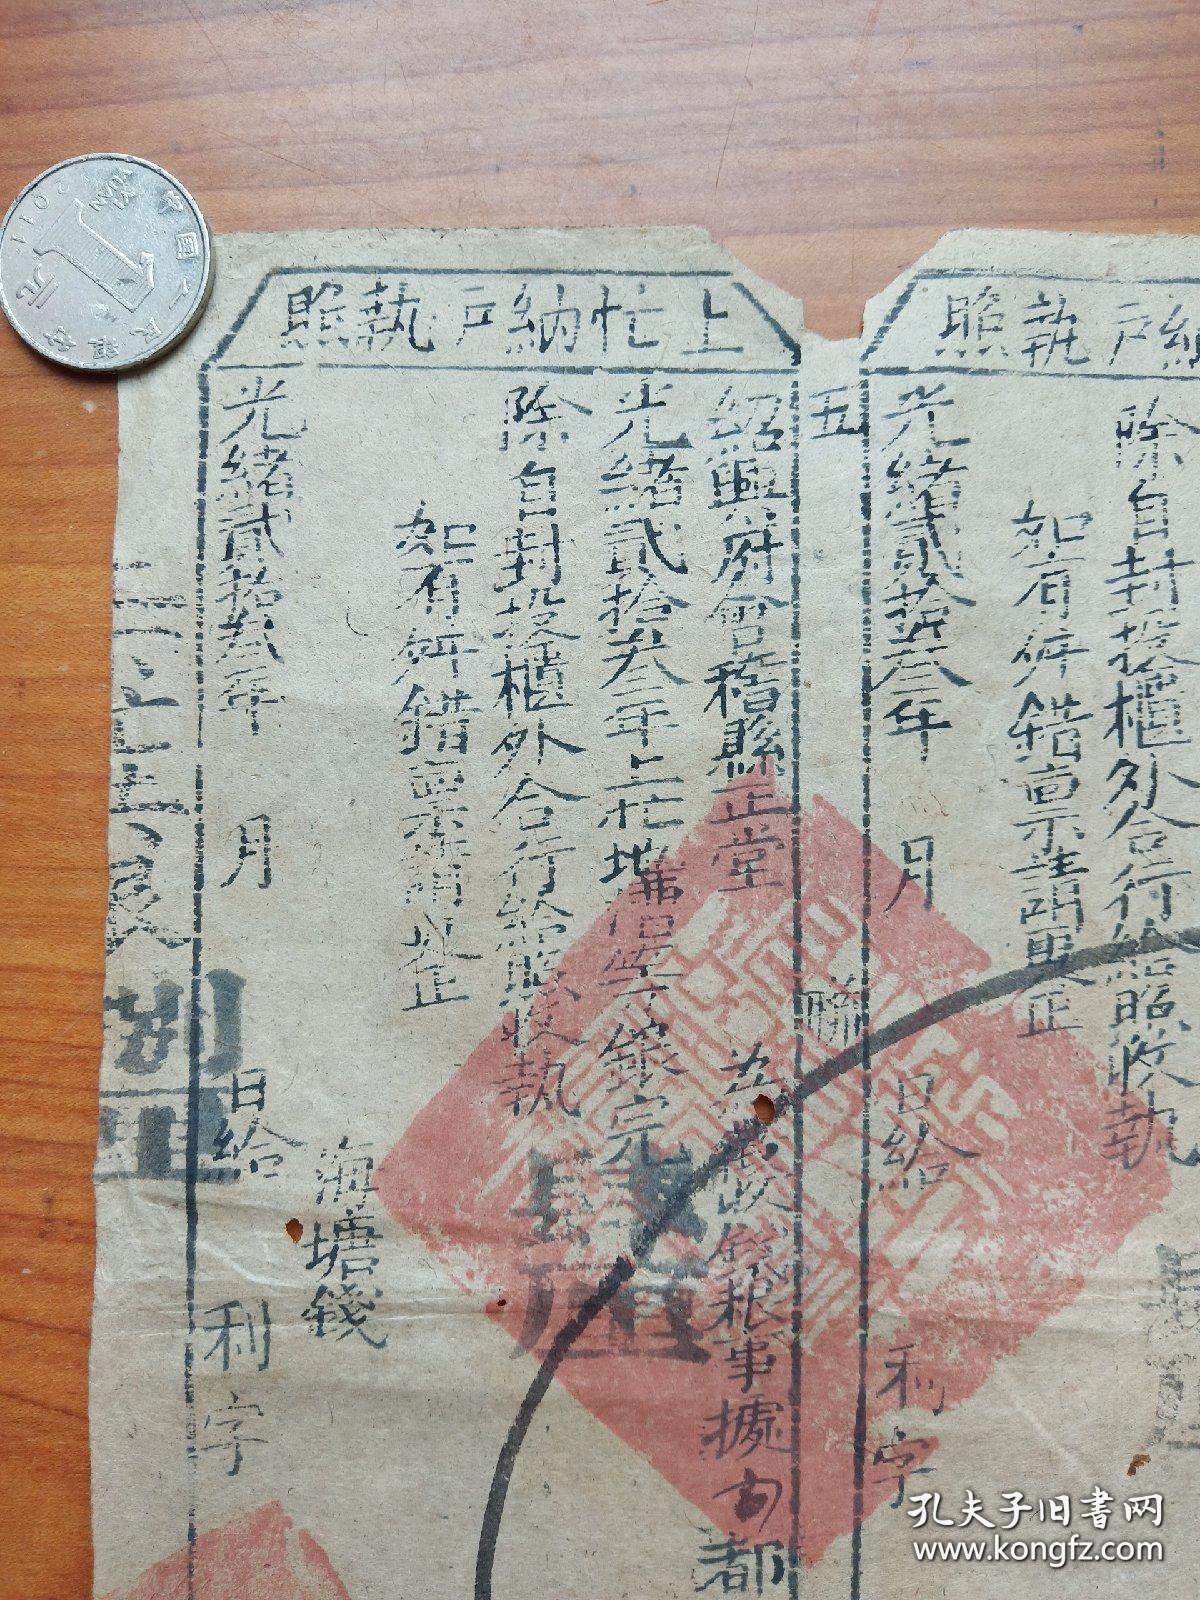 納戶執照
除自封投櫃外合行給照收執
如有舛錯稟請更正
光緒貳拾叁年 月 日給 利字
五 聯
上忙納戶執照
紹興府會稽縣正堂 為徵收錢糧事據 都
光緒貳拾叁年上忙地 銀完
除自封投櫃外合行給照收執
如有舛錯稟請更正
海塘錢
光緒貳拾叁年 月 日給 利字
中国人民银行
1
元
YI YUAN
2011
孔夫子旧书网
www.kongfz.com